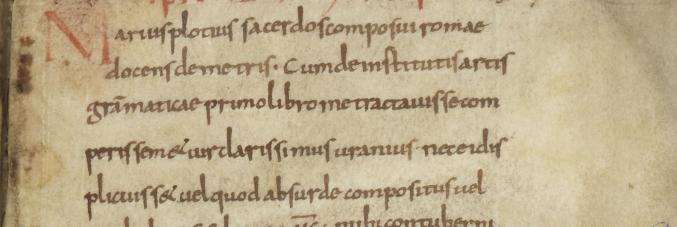 Marius plotius sacerdos composui romae
docens de metris. Cum de institutis artis
grāmaticae primo libro me tractauisse com
perissem & uir clarissimus uranius nec eidis
plicuiss& uel quod absurde compositus uel
mihi contuberni